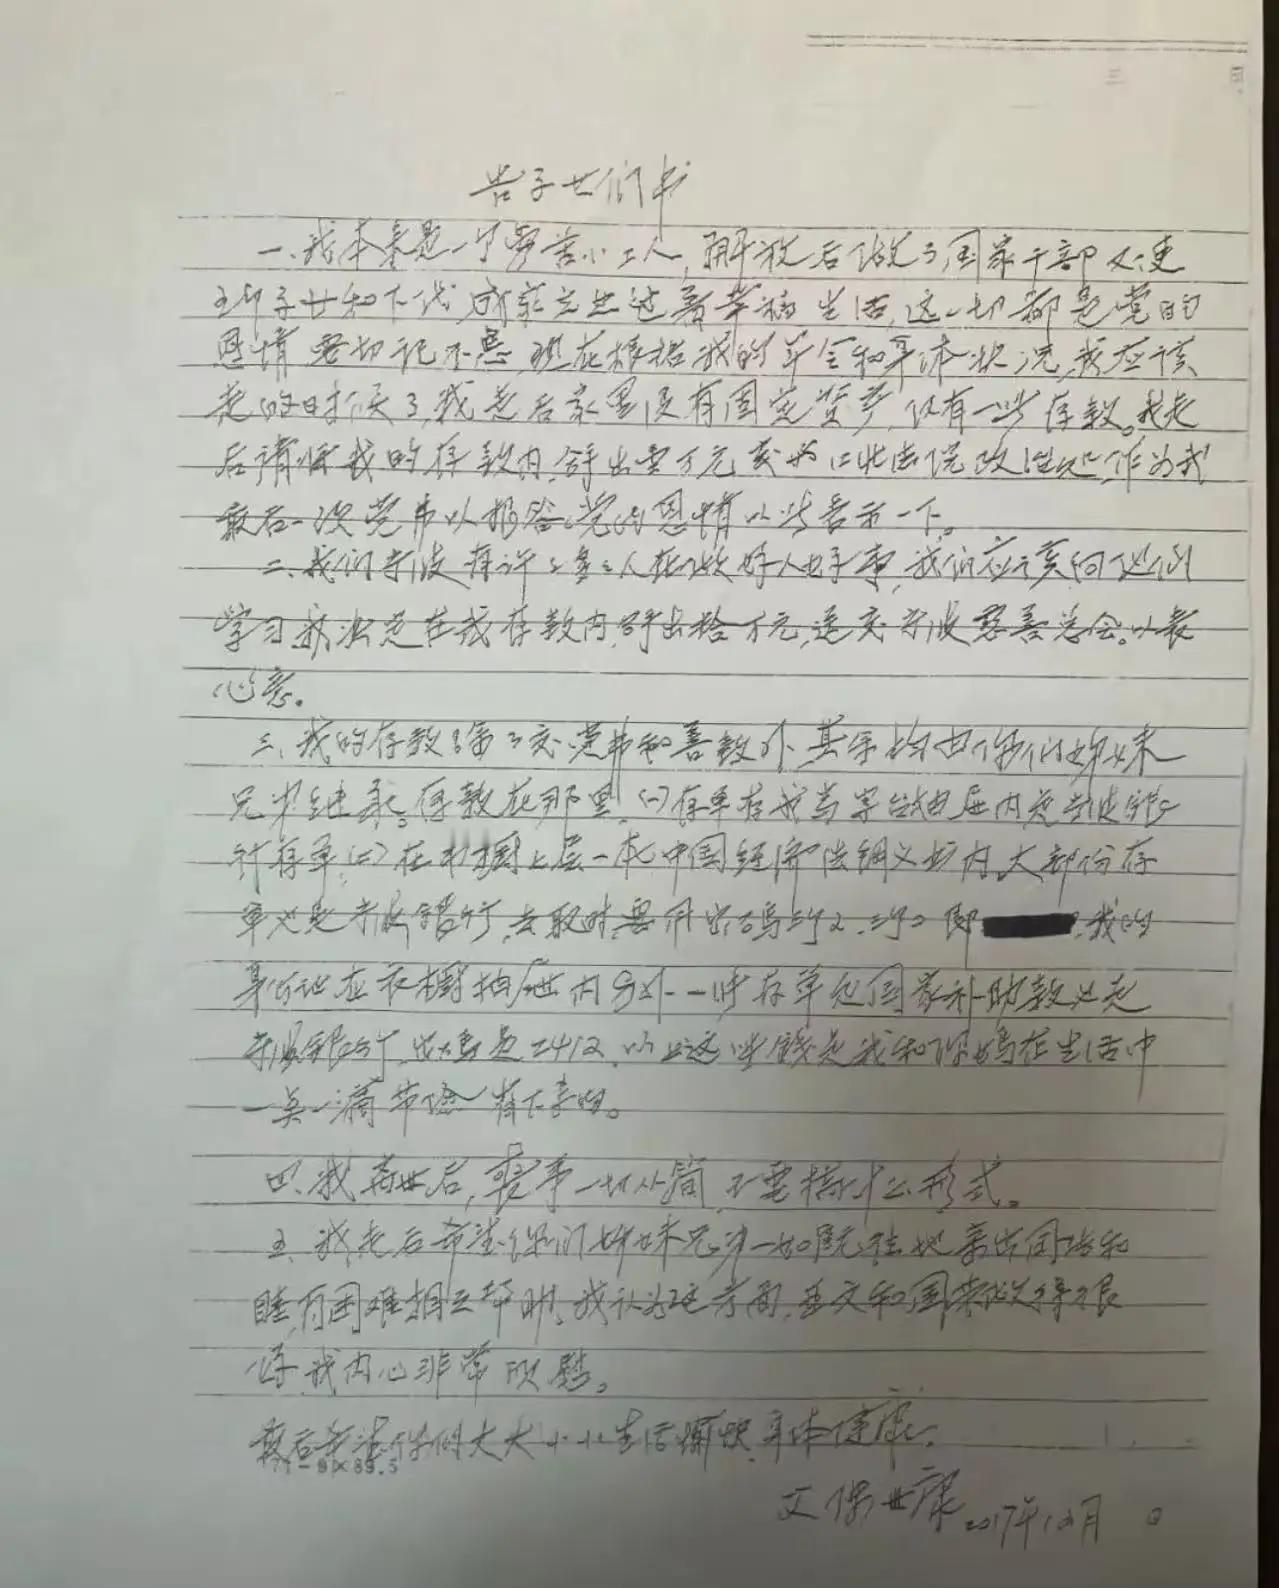 告子女们书
一、我本来是一个劳苦小工人，解放后做了国家干部又使
子女和下代，成家立业过着幸福生活，这一切都是党的
恩情要切记不忘，现在根据我的年令和身体状况，我应该
走的时候了，我走后家里没有固定资产，仅有一些存款。我走
后请你我的存款内，拿出壹万元交为江北法院政治处，作为我
最后一次党费以报答党的恩情以此表示一下。
二、我们宁波有许多多人在做好人好事，我们应该向他们
学习，我决定在我存款内拿出拾万元，送交宁波慈善总会。以表
心意。
三、我的存款除了交党费和善款外，其余均由你们姊妹
兄弟继承。存款在那里，(一)存单存我写字台抽屉内是宁波银
行存单，(二)在书橱上层一本中国经济法纲义书内，大部份存
单也是宁波银行，去取时要用密码 即 我的
身份证在衣橱抽屉内另外一些存单包国家补助款也是
宁波银行，密码是2412，以上这些钱是我和你妈在生活中
一点一滴节俭省下来的。
四、我离世后，丧事一切从简，不要搞什么形式。
五、我走后希望你们姊妹兄弟一如既往地亲密团结和
睦，有困难相互帮助，我认为 和国荣做得很
好，我内心非常欣慰。
最后希望你们大大小小生活愉快，身体健康。
71-91×89.5
父 世康 2017年10月 日